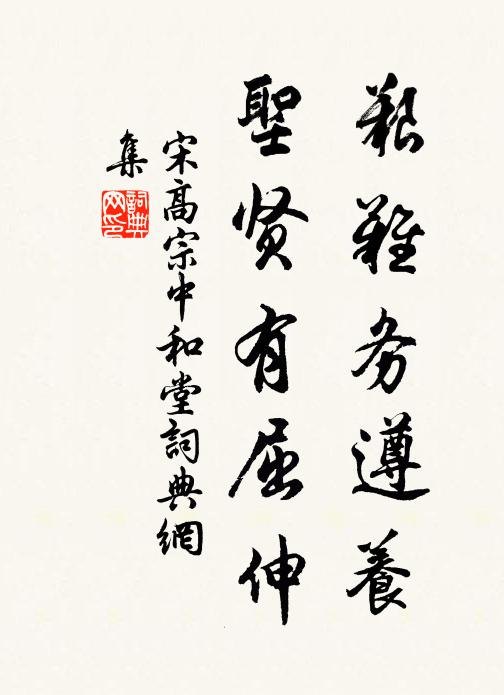 艱難务遵養
聖贤有屈伸
宋高宗中和堂詞典網
集
詞典
网印